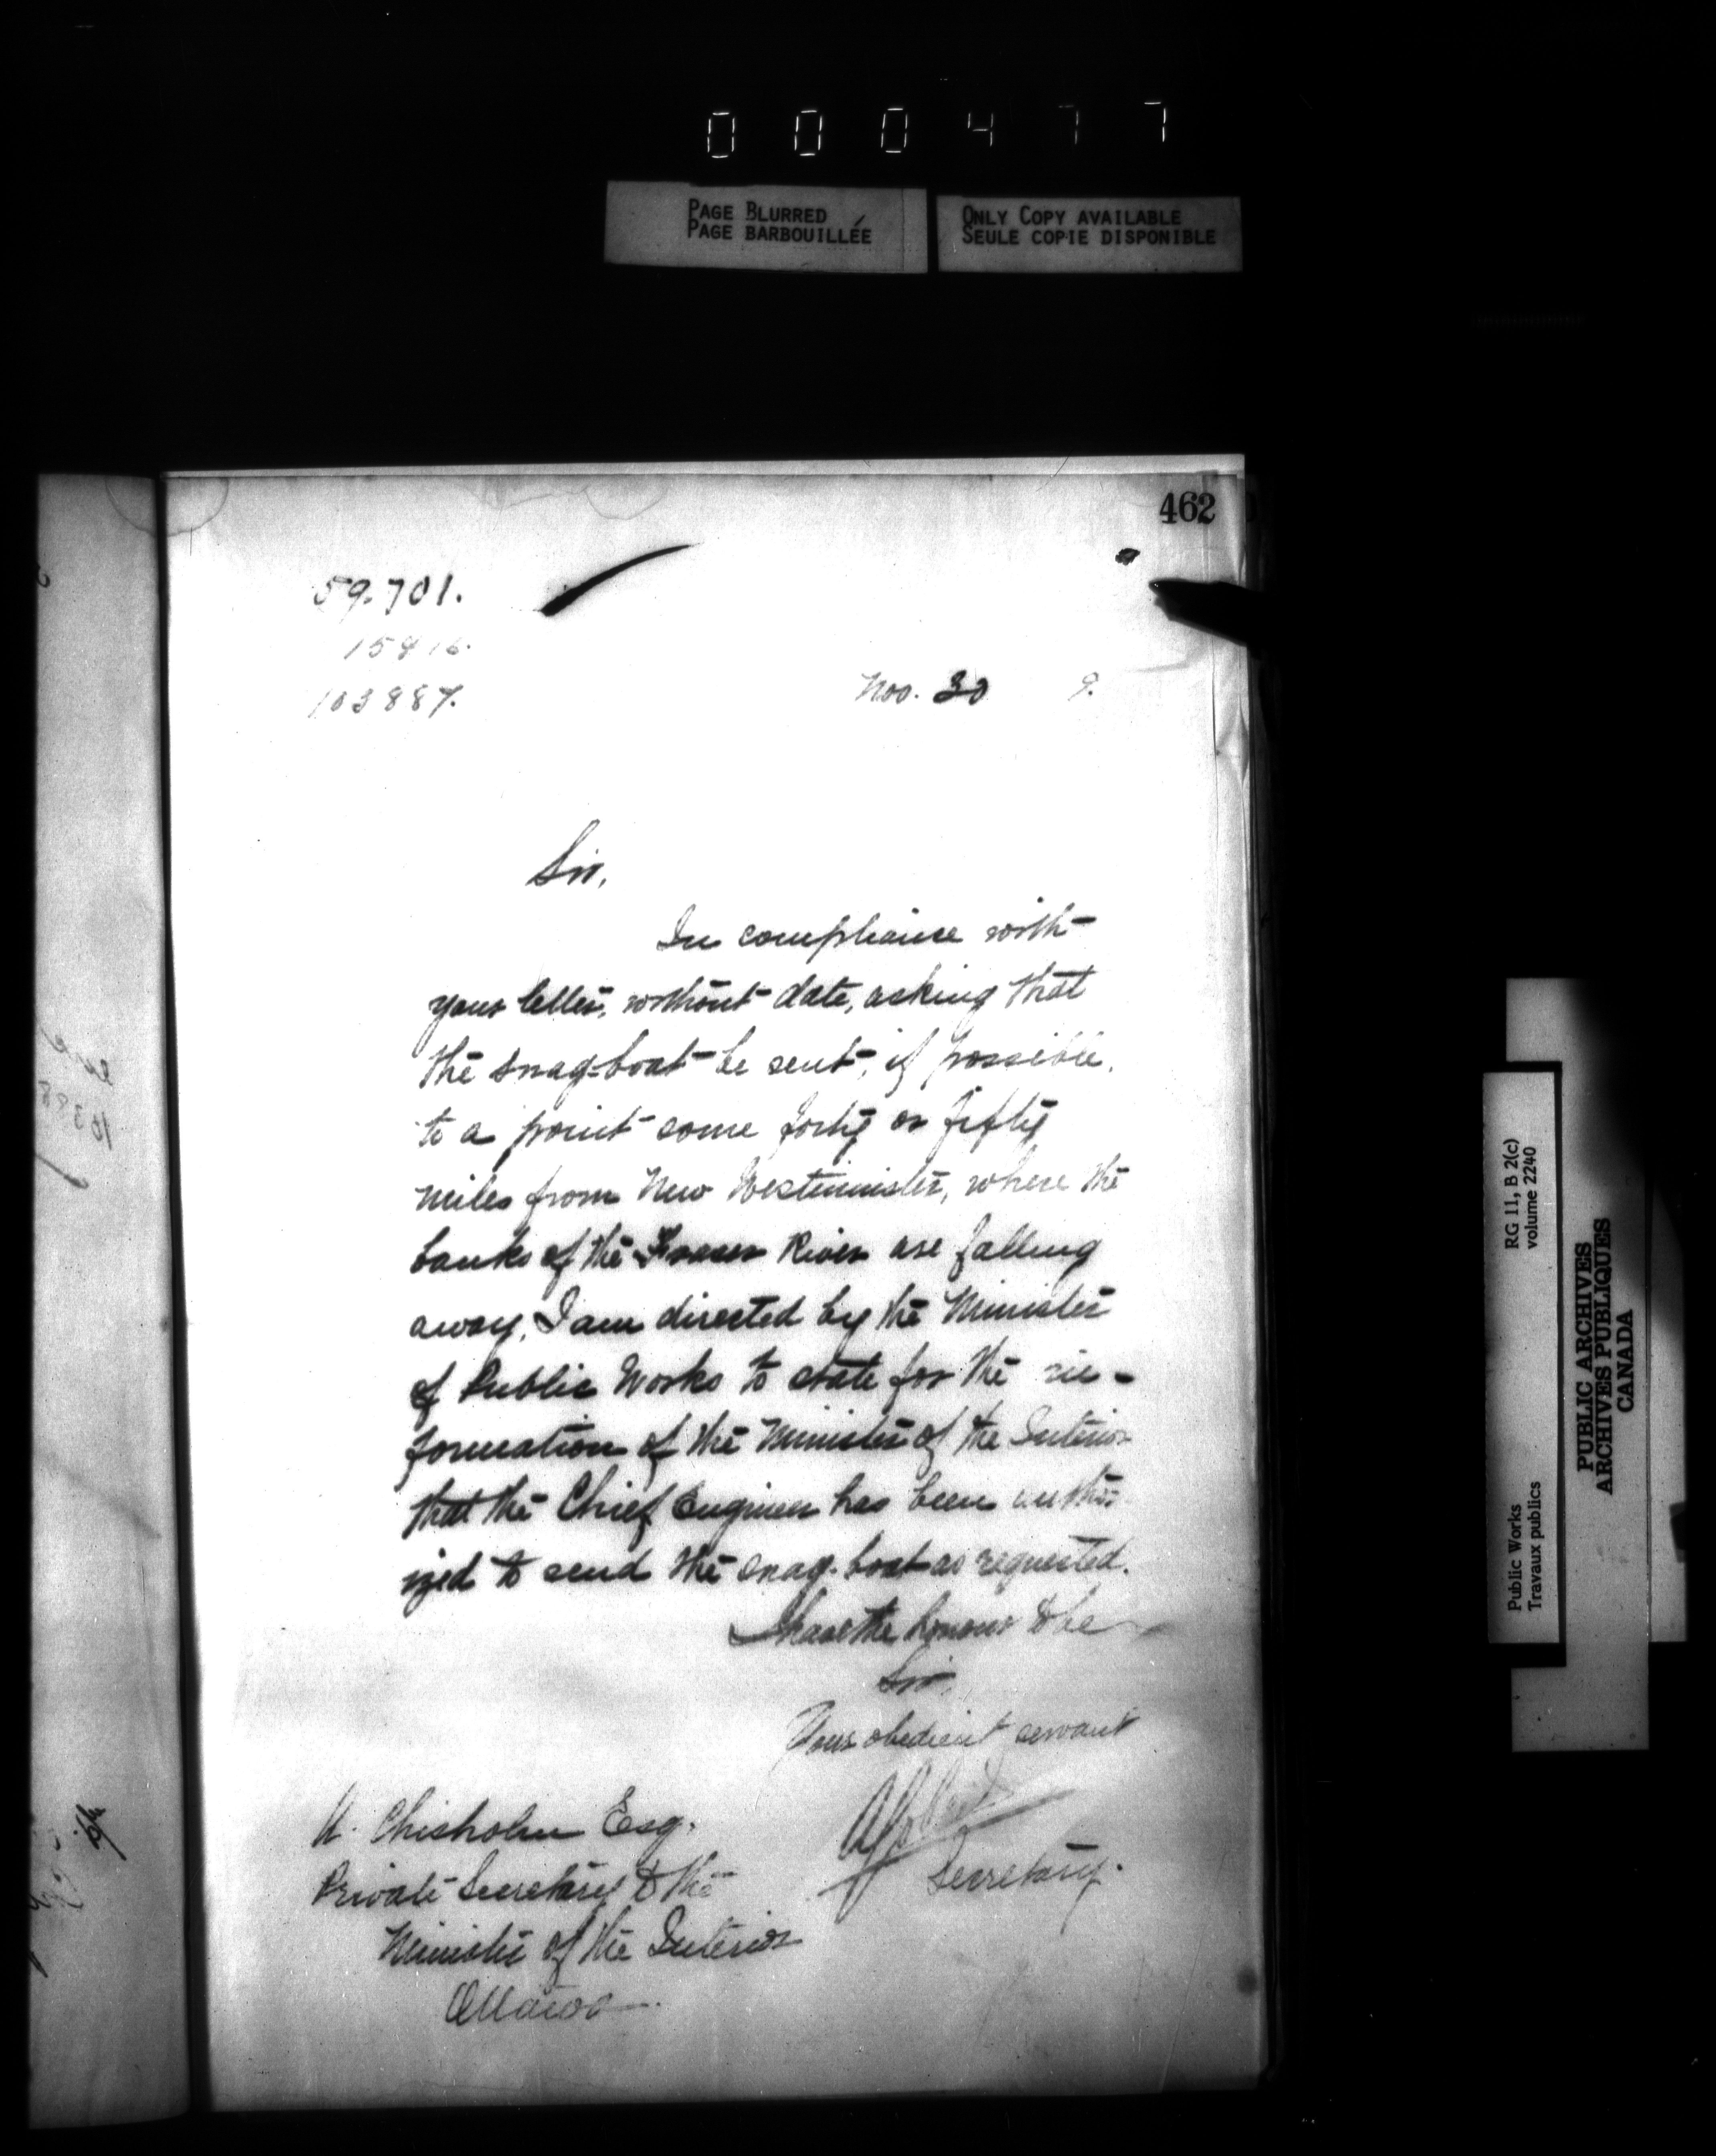 000477
PAGE BLURRED
PAGE BARBOUILLÉE
ONLY COPY AVAILABLE
SEULE COPIE DISPONIBLE
462
59.701.
15816.
103887.
Nov. 30 9.
Sir,
In compliance with
your letter, without date, asking that
the snag-boat be sent, if possible,
to a point some forty or fifty
miles from New Westminster, where the
banks of the Fraser River are falling
away, I am directed by the Minister
of Public Works to state for the in-
formation of the Minister of the Interior
that the Chief Engineer has been author-
ized to send the snag-boat as requested.
I have the honour to be
Sir,
Your obedient servant
Secretary.
A. Chisholm Esq.
Private Secretary to the
Minister of the Interior
Ottawa
RG 11, B 2(c)
volume 2240
Public Works
Travaux publics
PUBLIC ARCHIVES
ARCHIVES PUBLIQUES
CANADA